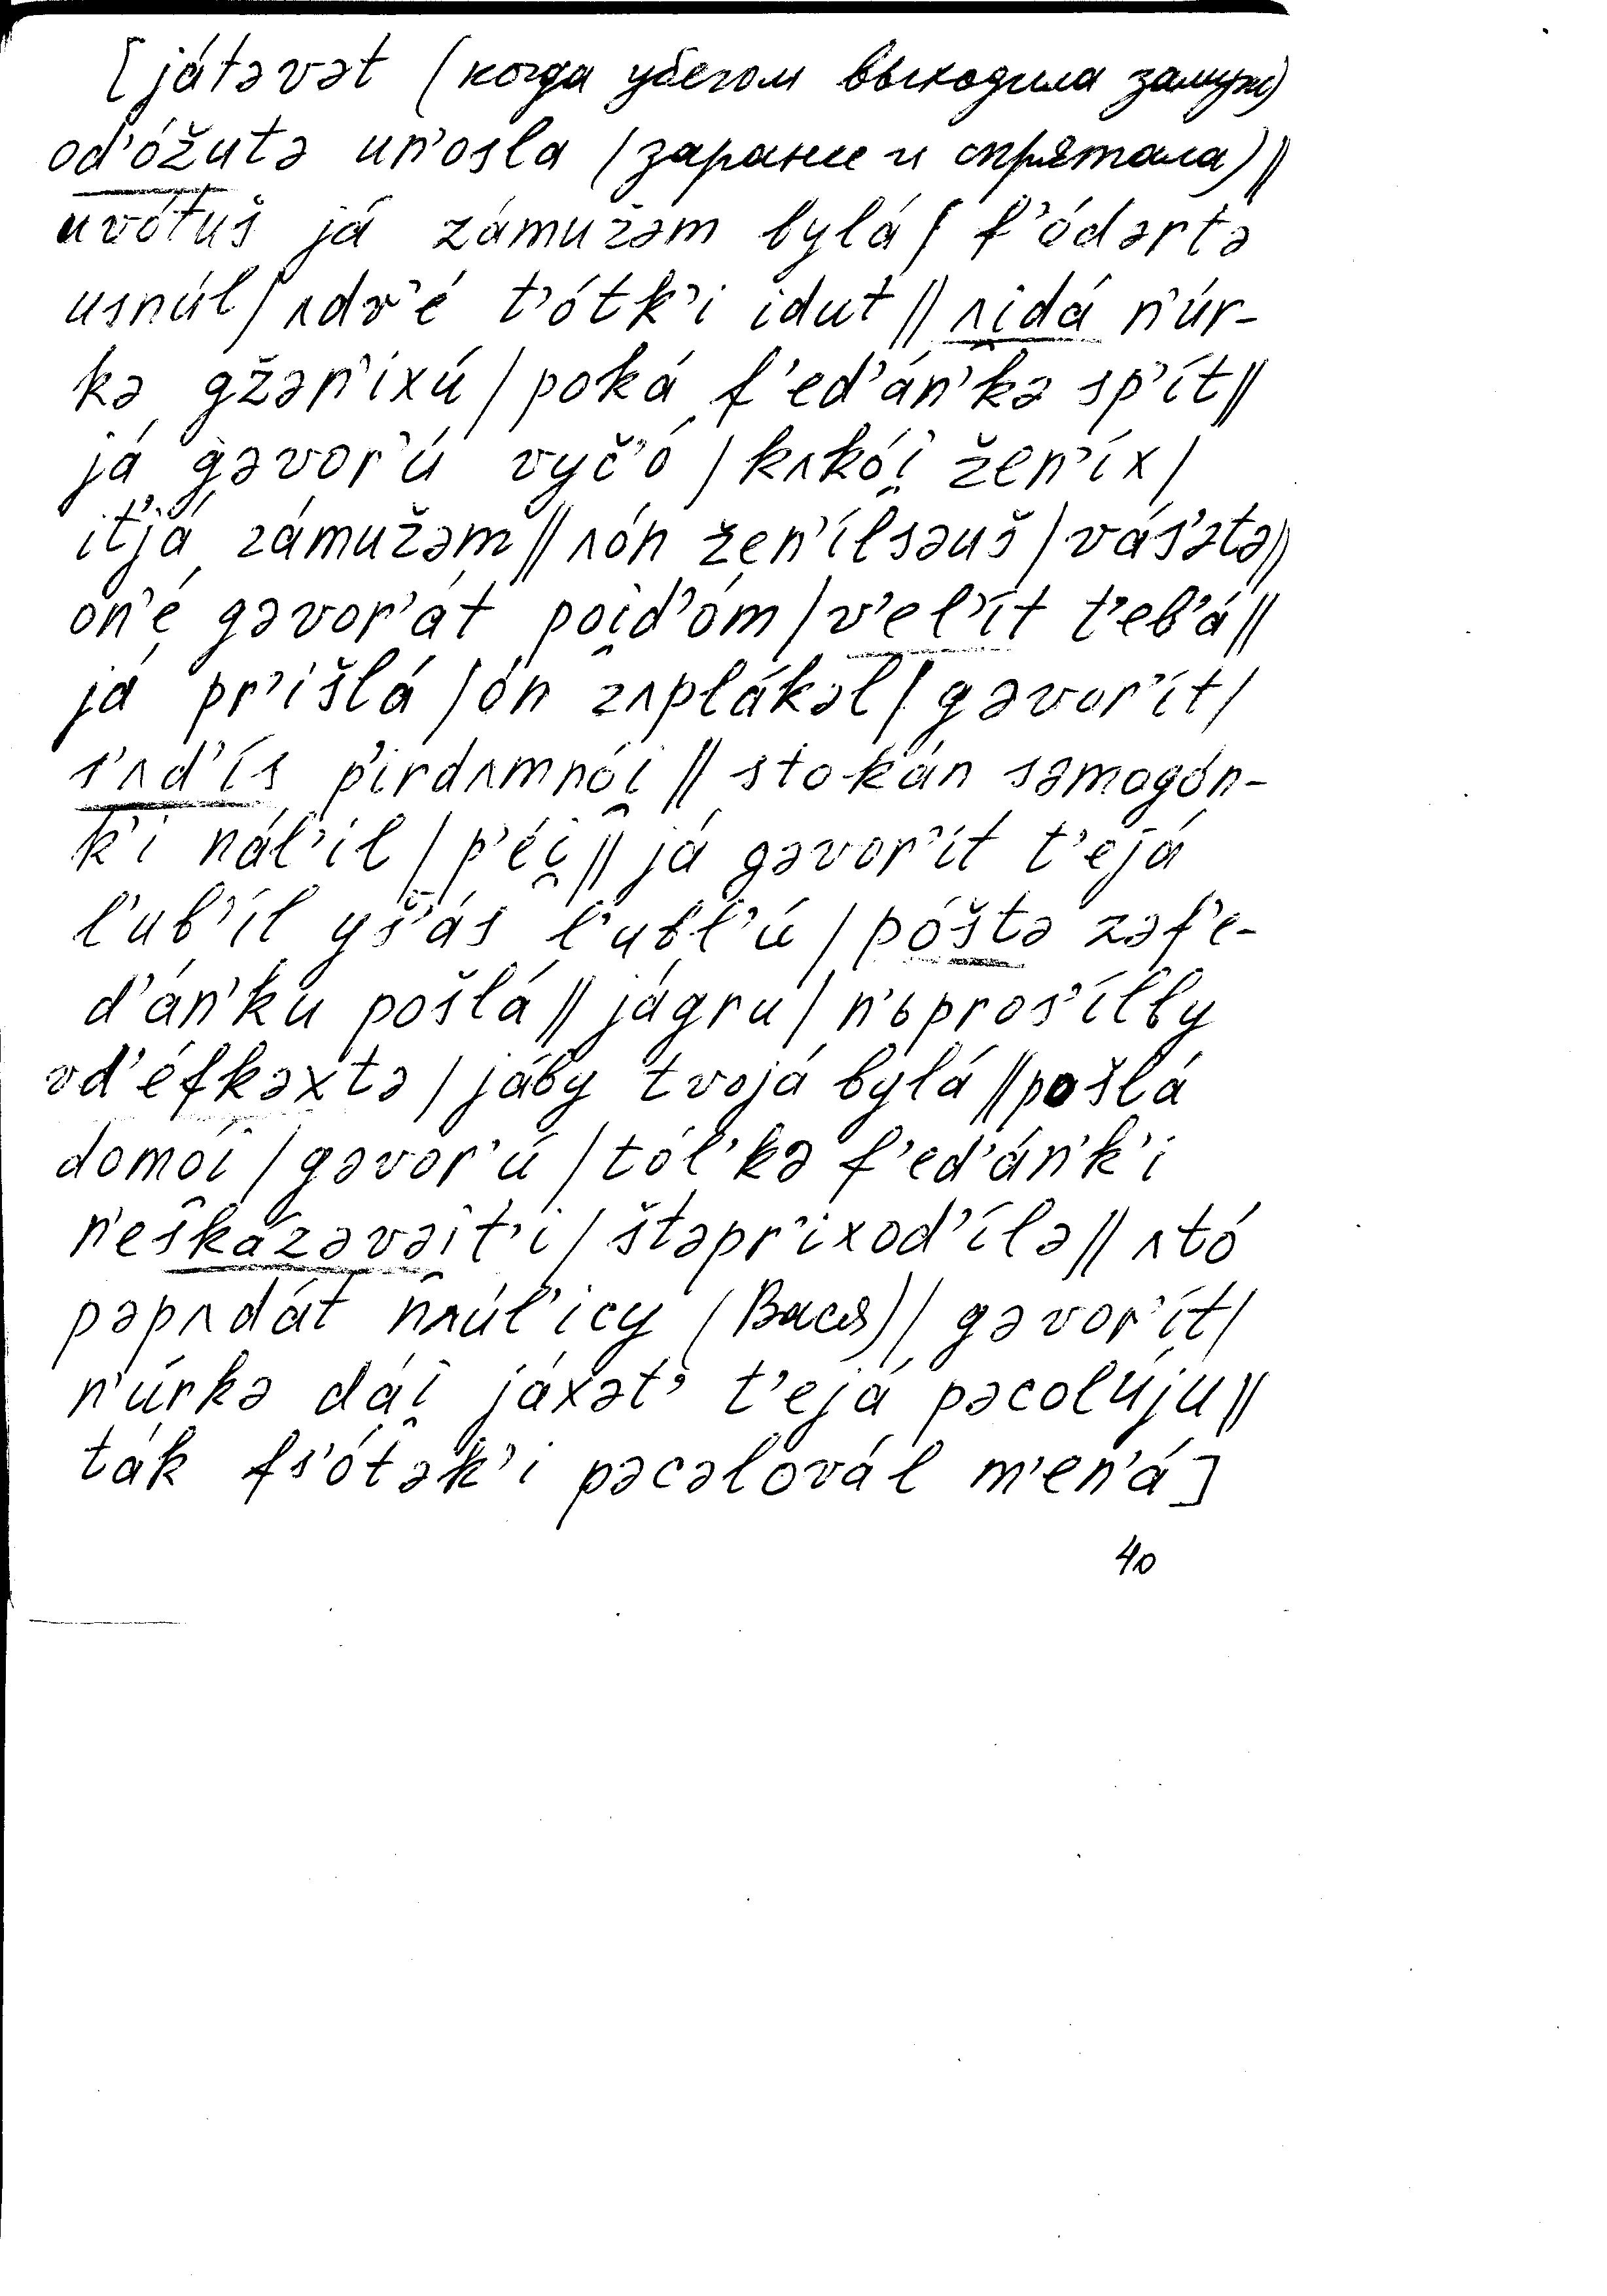 [játəvət (когда убегом выходила замуж)
od’óžutə un’osla (заранее и спрятала)||
uvótuš já zámužəm bylá| f’ódərtə
usnúl| ʌdv’é t’ótk’i idut|| ʌidá n’úr-
kə gžən’ixú| poká f’ed’án’kə sp’ít||
já gəvor’ú vyč’ó| kʌkói̯ žen’íx|
it’já zámužəm|| ʌón žen’ílsəuš| vás’ətə||
on’é gəvor’át poi̯d’óm| v’el’ít t’eb’á||
já pr’išlá| ón zʌplákəl| gəvor’ít|
s’ʌd’ís p’irdʌmnói̯|| stokán səmogón-
k’i nál’il| p’éi̯|| já gəvor’ít t’ejá
l’ub’íl yš’ás l’ubl’ú| póštə zəf’e-
d’án’ku pošlá|| jágru| n’ьpros’ílby
vd’éfkəxtə| jáby tvojá bylá|| pošlá
domói̯| gəvor’ú| tól’kə f’ed’án’k’i
n’eskázəvəi̯t’i| štəpr’ixod’ílə|| ʌtó
pəpʌdát nʌúl’icy (Вася)| gəvor’ít|
n’úrkə dái̯ jáxət’ t’ejá pəcolúju||
ták fs’ótək’i pəcəlovál m’en’á]
40